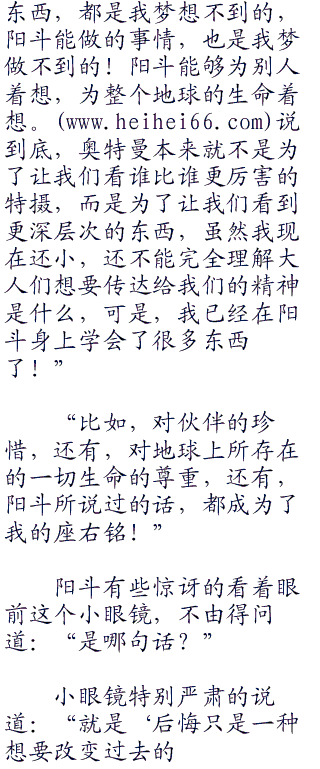 东西，都是我梦想不到的，
阳斗能做的事情，也是我梦
做不到的！阳斗能够为别人
着想，为整个地球的生命着
想。(www.heihei66.com)说
到底，奥特曼本来就不是为
了让我们看谁比谁更厉害的
特摄，而是为了让我们看到
更深层次的东西，虽然我现
在还小，还不能完全理解大
人们想要传达给我们的精神
是什么，可是，我已经在阳
斗身上学会了很多东西
了！”
“比如，对伙伴的珍
惜，还有，对地球上所存在
的一切生命的尊重，还有，
阳斗所说过的话，都成为了
我的座右铭！”
阳斗有些惊讶的看着眼
前这个小眼镜，不由得问
道：“是哪句话？”
小眼镜特别严肃的说
道：“就是‘后悔只是一种
想要改变过去的